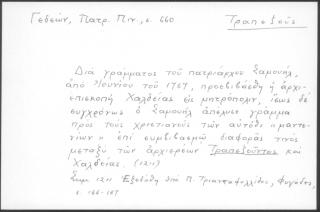 Γεδεών, Πατρ. Πιν., σ. 660
Τραπεζοῦς
Διὰ γράμματος τοῦ πατριάρχου Σαμουήλ,
ἀπὸ Ἰουνίου τοῦ 1767, προεβιβάσθη ἡ ἀρχι-
επισκοπὴ Χαλδείας εἰς μητρόπολιν, ἴσως δὲ
συγχρόνως ὁ Σαμουὴλ ἀπέλυσε γράμμα
πρὸς τοὺς χριστιανοὺς τῶν αὐτόθι «μαντε-
νίων» ἐπὶ συμβιβασμῷ διαφορᾶς τινος
μεταξὺ τῶν ἀρχιερέων Τραπεζοῦντος καὶ
Χαλδείας. (1211)
Σημ. 1211 Ἐξεδόθη ὑπὸ Π. Τριανταφυλλίδου, Φυγάδες,
σ. 166-167